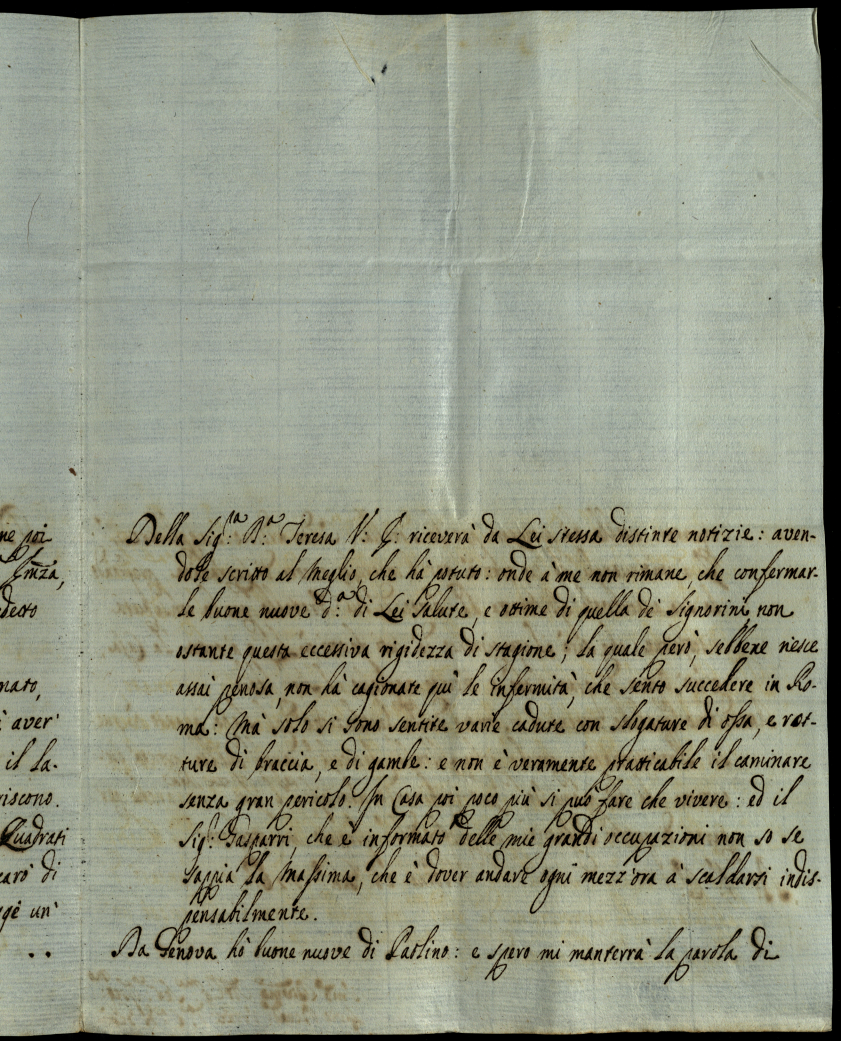 ne poi
Emza,
detto
nato,
aver'
il la-
riscono.
Quadrati
carò di
un'
. .
Della Sig.ra B.a Teresa V: G: riceverà da Lei stessa distinte notizie: aven-
dole scritto al meglio, che hà potuto: onde à me non rimane, che confermar-
le buone nuove d.a di Lei Salute, e ottime di quella de' Signorini, non
ostante questa eccessiva rigidezza di stagione; la quale però, sebbene riesce
assai penosa, non hà cagionate quì le infermità, che sento succedere in Ro-
ma: Mà solo si sono sentite varie cadute con slogature di ossa, e rot-
ture di braccia, e di gambe: e non è veramente pratticabile il caminare
senza gran pericolo. In Casa poi poco più si può fare che vivere: ed il
Sig.r Gasparri, che è informato delle mie grandi occupazioni non so se
sappia la massima, che è dover andare ogni mezz'ora à scaldarsi indis-
pensabilmente.
Da Genova hò buone nuove di Paolino: e spero mi manterrà la parola di